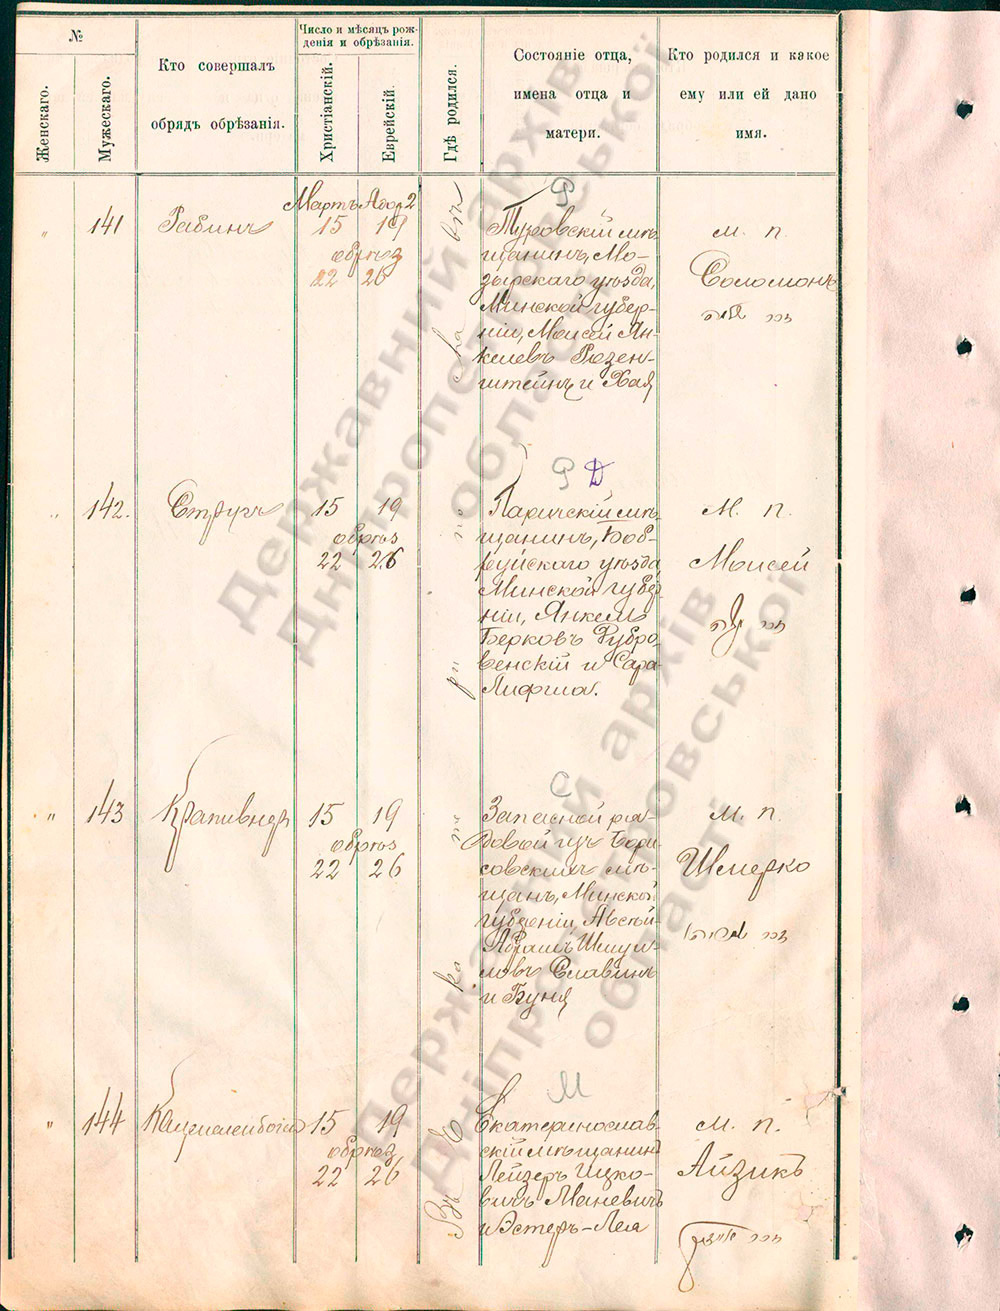 №
Женскаго.
Мужескаго.
Кто совершалъ
обрядъ обрѣзанія.
Число и мѣсяцъ рож-
денія и обрѣзанія.
Христіанскій.
Еврейскій.
Гдѣ родился.
Состояніе отца,
имена отца и
матери.
Кто родился и какое
ему или ей дано
имя.
Въ Екатеринославѣ
„
141
Рабинъ
Мартъ Адар 2
15 19
обрѣз
22 26
Р
Туровскій мѣ-
щанинъ, Мо-
зырскаго уѣзда,
Минской губер-
ніи, Моисей Ян-
келевъ Розен-
штейнъ и Хая
м. п.
Соломонъ
זכר
„
142.
Стругъ
15 19
обрѣз
22 26
Р Д
Паричскій мѣ-
щанинъ, Боб-
руйскаго уѣзда
Минской губер-
ніи, Янкель
Берковъ Дубро-
венскій и Сара-
Лифша.
м. п.
Моисей
זכר
„
143
Крапивнеръ
15 19
обрѣз
22 26
С
Запасной ря-
довой изъ Бори-
совскихъ мѣ-
щанъ, Минской
губерніи, Авсѣй-
Абрамъ Шмуй-
ловъ Славинъ
и Буня
м. п.
Шмерко
זכר
„
144
15 19
обрѣз
22 26
М
Екатеринослав-
скій мѣщанинъ
Лейзеръ Ицко-
вичъ Маневичъ
и Эстеръ-Лея
м. п.
Айзикъ
זכר
Державний архів
Дніпропетровської
області
Державний архів
Дніпропетровської
області